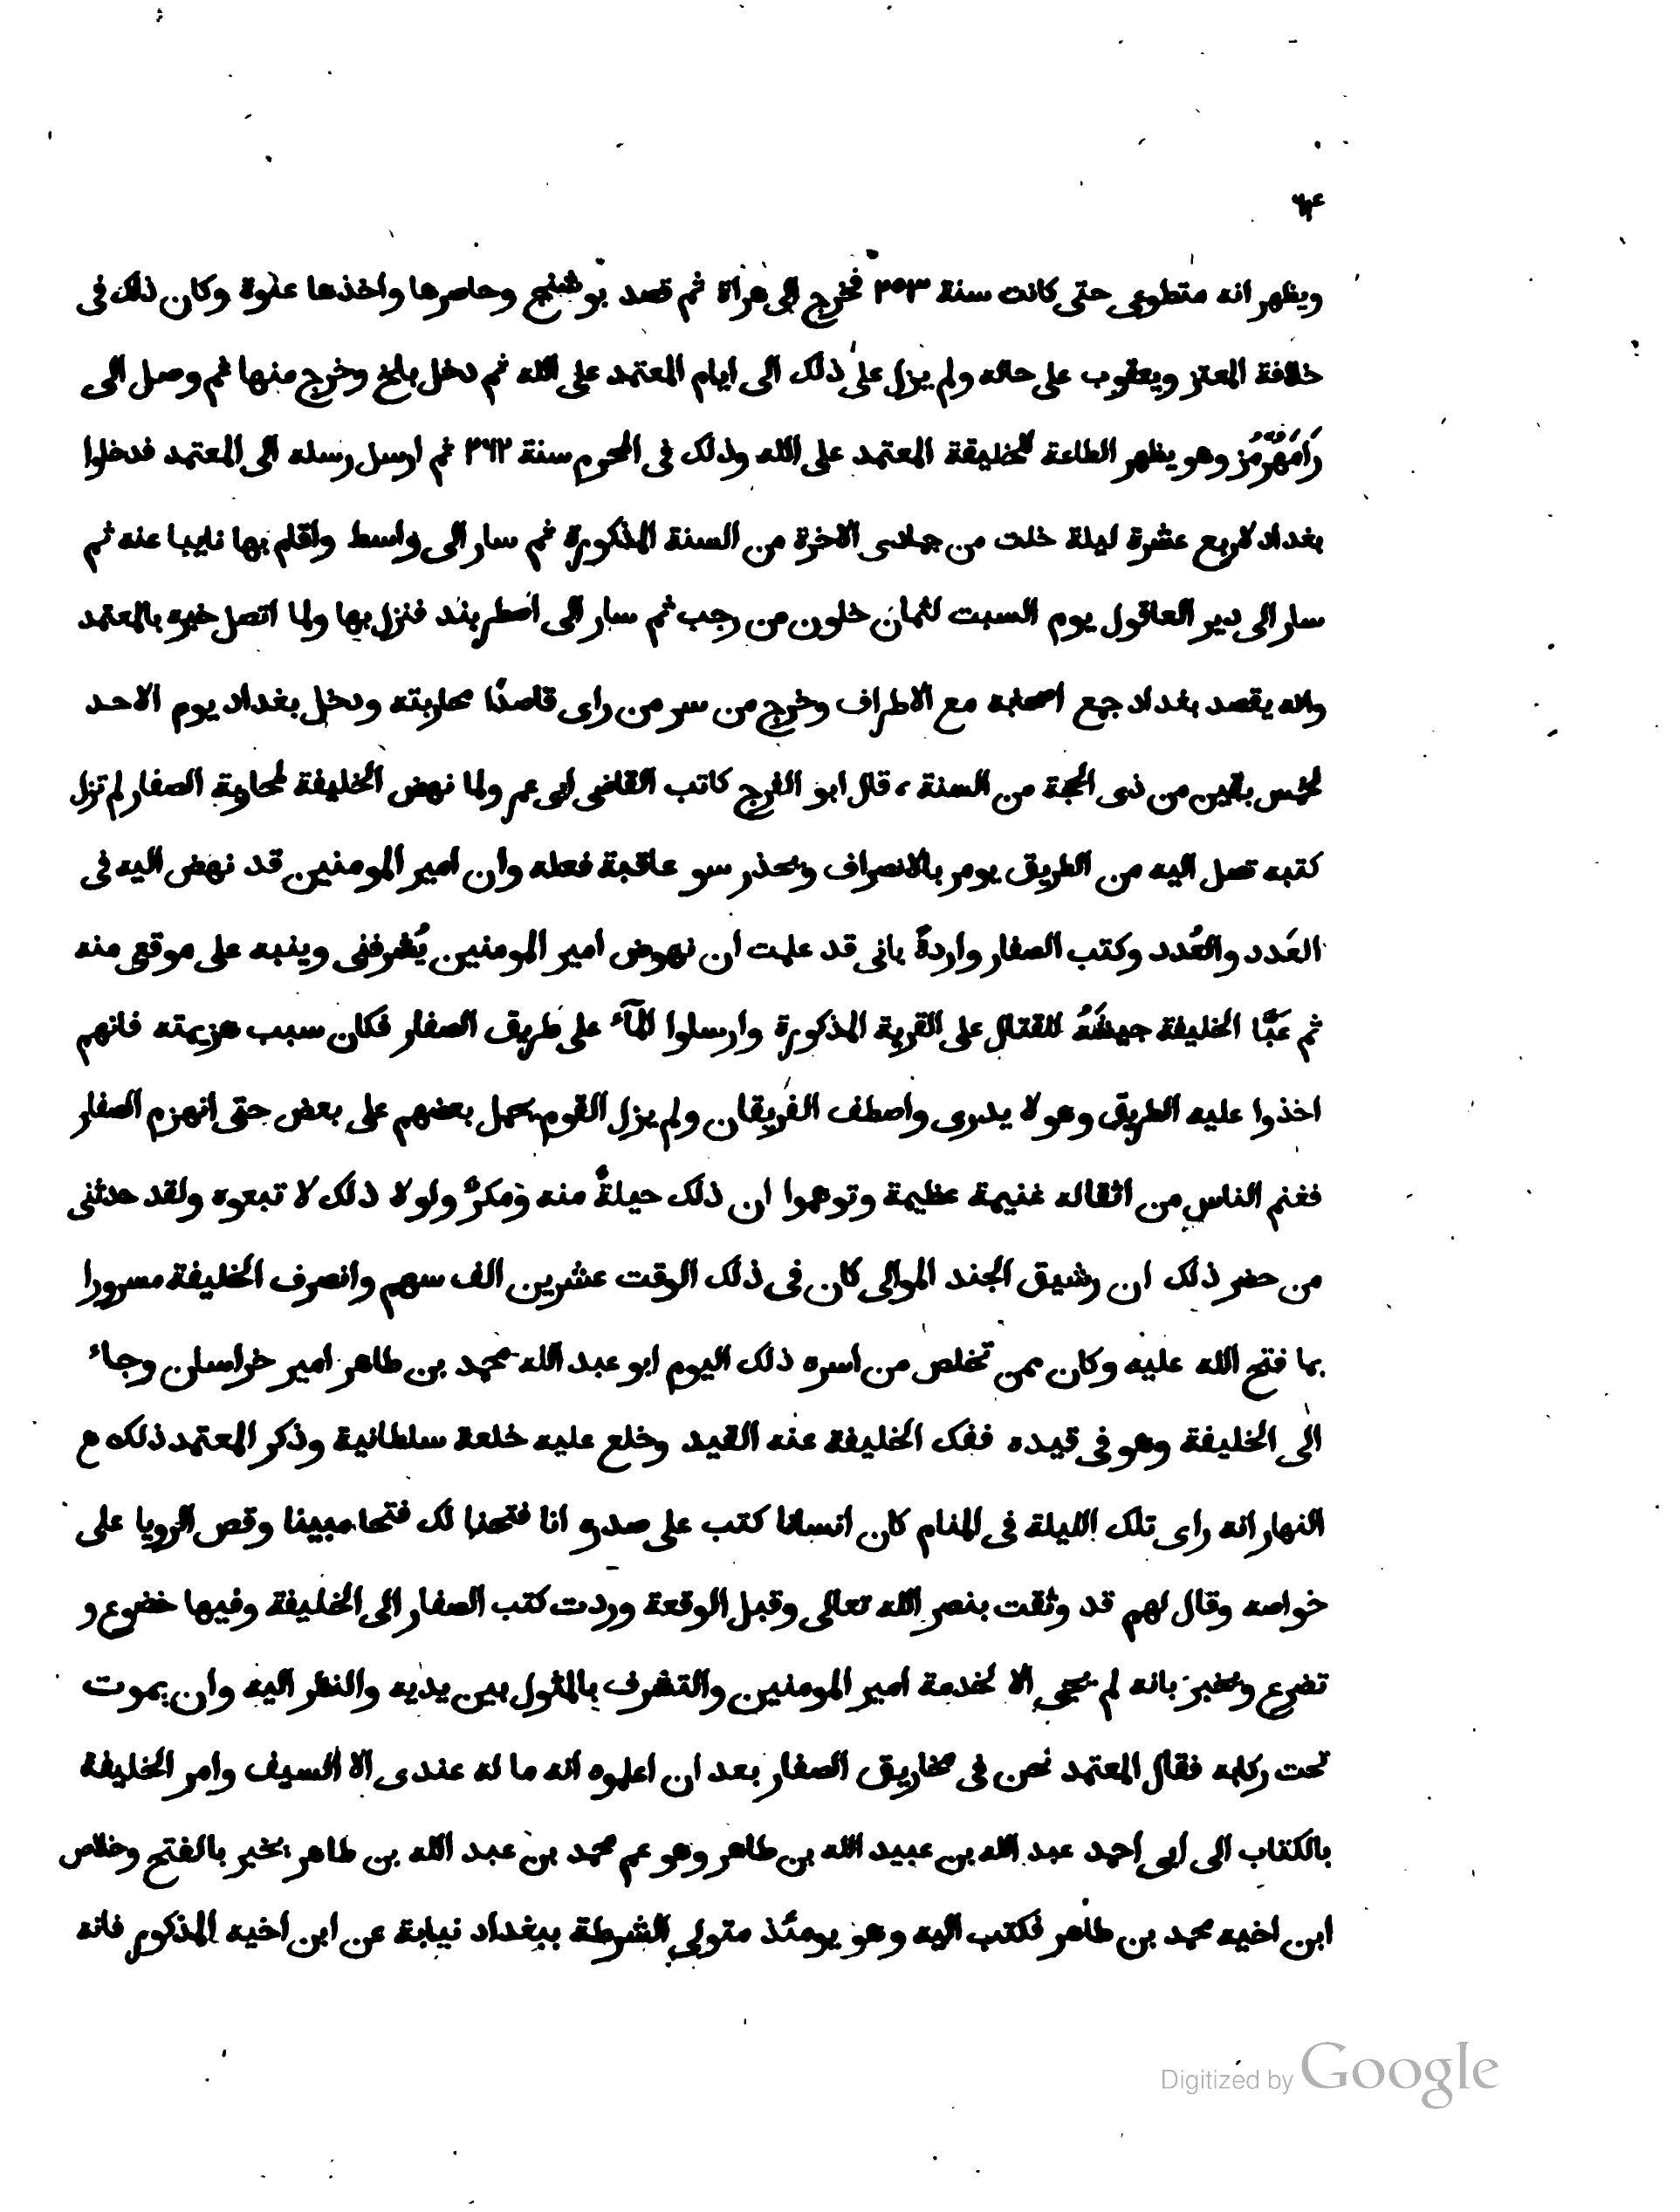 ٦٤
ويظهر انه متطوعى حتى كانت سنة ٢٥٣ فخرج الى هراة ثم قصد بوشنج وحاصرها واخذها عنوة وكان ذلك فى
خلافة المعتز ويعقوب على حاله ولم يزل على ذلك الى ايام المعتمد على الله ثم دخل بلخ وخرج منها ثم وصل الى
رَامَهُرْمُز وهو يظهر الطاعة للخليقة المعتمد على الله وذلك فى المحرم سنة ٢٦٢ ثم ارسل رسله الى المعتمد فدخلوا
بغداد لاربع عشرة ليلة خلت من جمادى الاخرة من السنة المذكورة ثم سار الى واسط واقام بها نايبا عنه ثم
سار الى دير العاقول يوم السبت لثمان خلون من رجب ثم سار الى اضطربند فنزل بها ولما اتصل خبره بالمعتمد
وانه يقصد بغداد جمع اصحابه مع الاطراف وخرج من سر من راى قاصدًا محاربته ودخل بغداد يوم الاحد
لخمس بقين من ذى الحجة من السنة ، قال ابو الفرج كاتب القاضى ابى عمر ولما نهض الخليفة لمحاربة الصفار لم تزل
كتبه تصل اليه من الطريق يومر بالانصراف ويحذر سو عاقبة فعله وان امير المومنين قد نهض اليه فى
العَدد والعُدد وكتب الصفار واردةً بانى قد علمت ان نهوض امير المومنين يُشرفنى وينبه على موقعى منه
ثم عَبَّا الخليفة جيشَهُ للقتال على القرية المذكورة وارسلوا المآء على طريق الصفار فكان سبب هزيمته فانهم
اخذوا عليه الطريق وهو لا يدرى واصطف الفريقان ولم يزل القوم يحمل بعضهم على بعض حتى انهزم الصفار
فغنم الناس من اثقاله غنيمة عظيمة وتوهموا ان ذلك حيلةً منه ومكرً ولولا ذلك لا تبعوه ولقد حدثنى
من حضر ذلك ان رشيق الجند الموالى كان فى ذلك الوقت عشرين الف سهم وانصرف الخليفة مسرورا
بما فتح الله عليه وكان ممن تخلص من اسره ذلك اليوم ابو عبد الله محمد بن طاهر امير خراسان وجاء
الى الخليفة وهو فى قيده ففك الخليفة عنه القيد وخلع عليه خلعة سلطانية وذكر المعتمد ذلك
النهار انه راى تلك الليلة فى المنام كان انسانا كتب على صدره انا فتحنا لك فتحا مبينا وقص الرويا على
خواصه وقال لهم قد وثقت بنصر الله تعالى وقبل الوقعة وردت كتب الصفار الى الخليفة وفيها خضوع و
تضرع ويخبر بانه لم يجى الا لخدمة امير المومنين والتشرف بالمثول بين يديه والنظر اليه وان يموت
تحت ركابه فقال المعتمد نحن فى مخاريق الصفار بعد ان اعلموه انه ما له عندى الا السيف وامر الخليفة
بالكتاب الى ابى احمد عبد الله بن عبيد الله بن طاهر وهو عم محمد بن عبد الله بن طاهر يخبر بالفتح وخلاص
ابن اخيه محمد بن طاهر فكتب اليه وهو يومئذ متولى الشرطة ببغداد نيابة عن ابن اخيه المذكور فانه
Digitized by Google